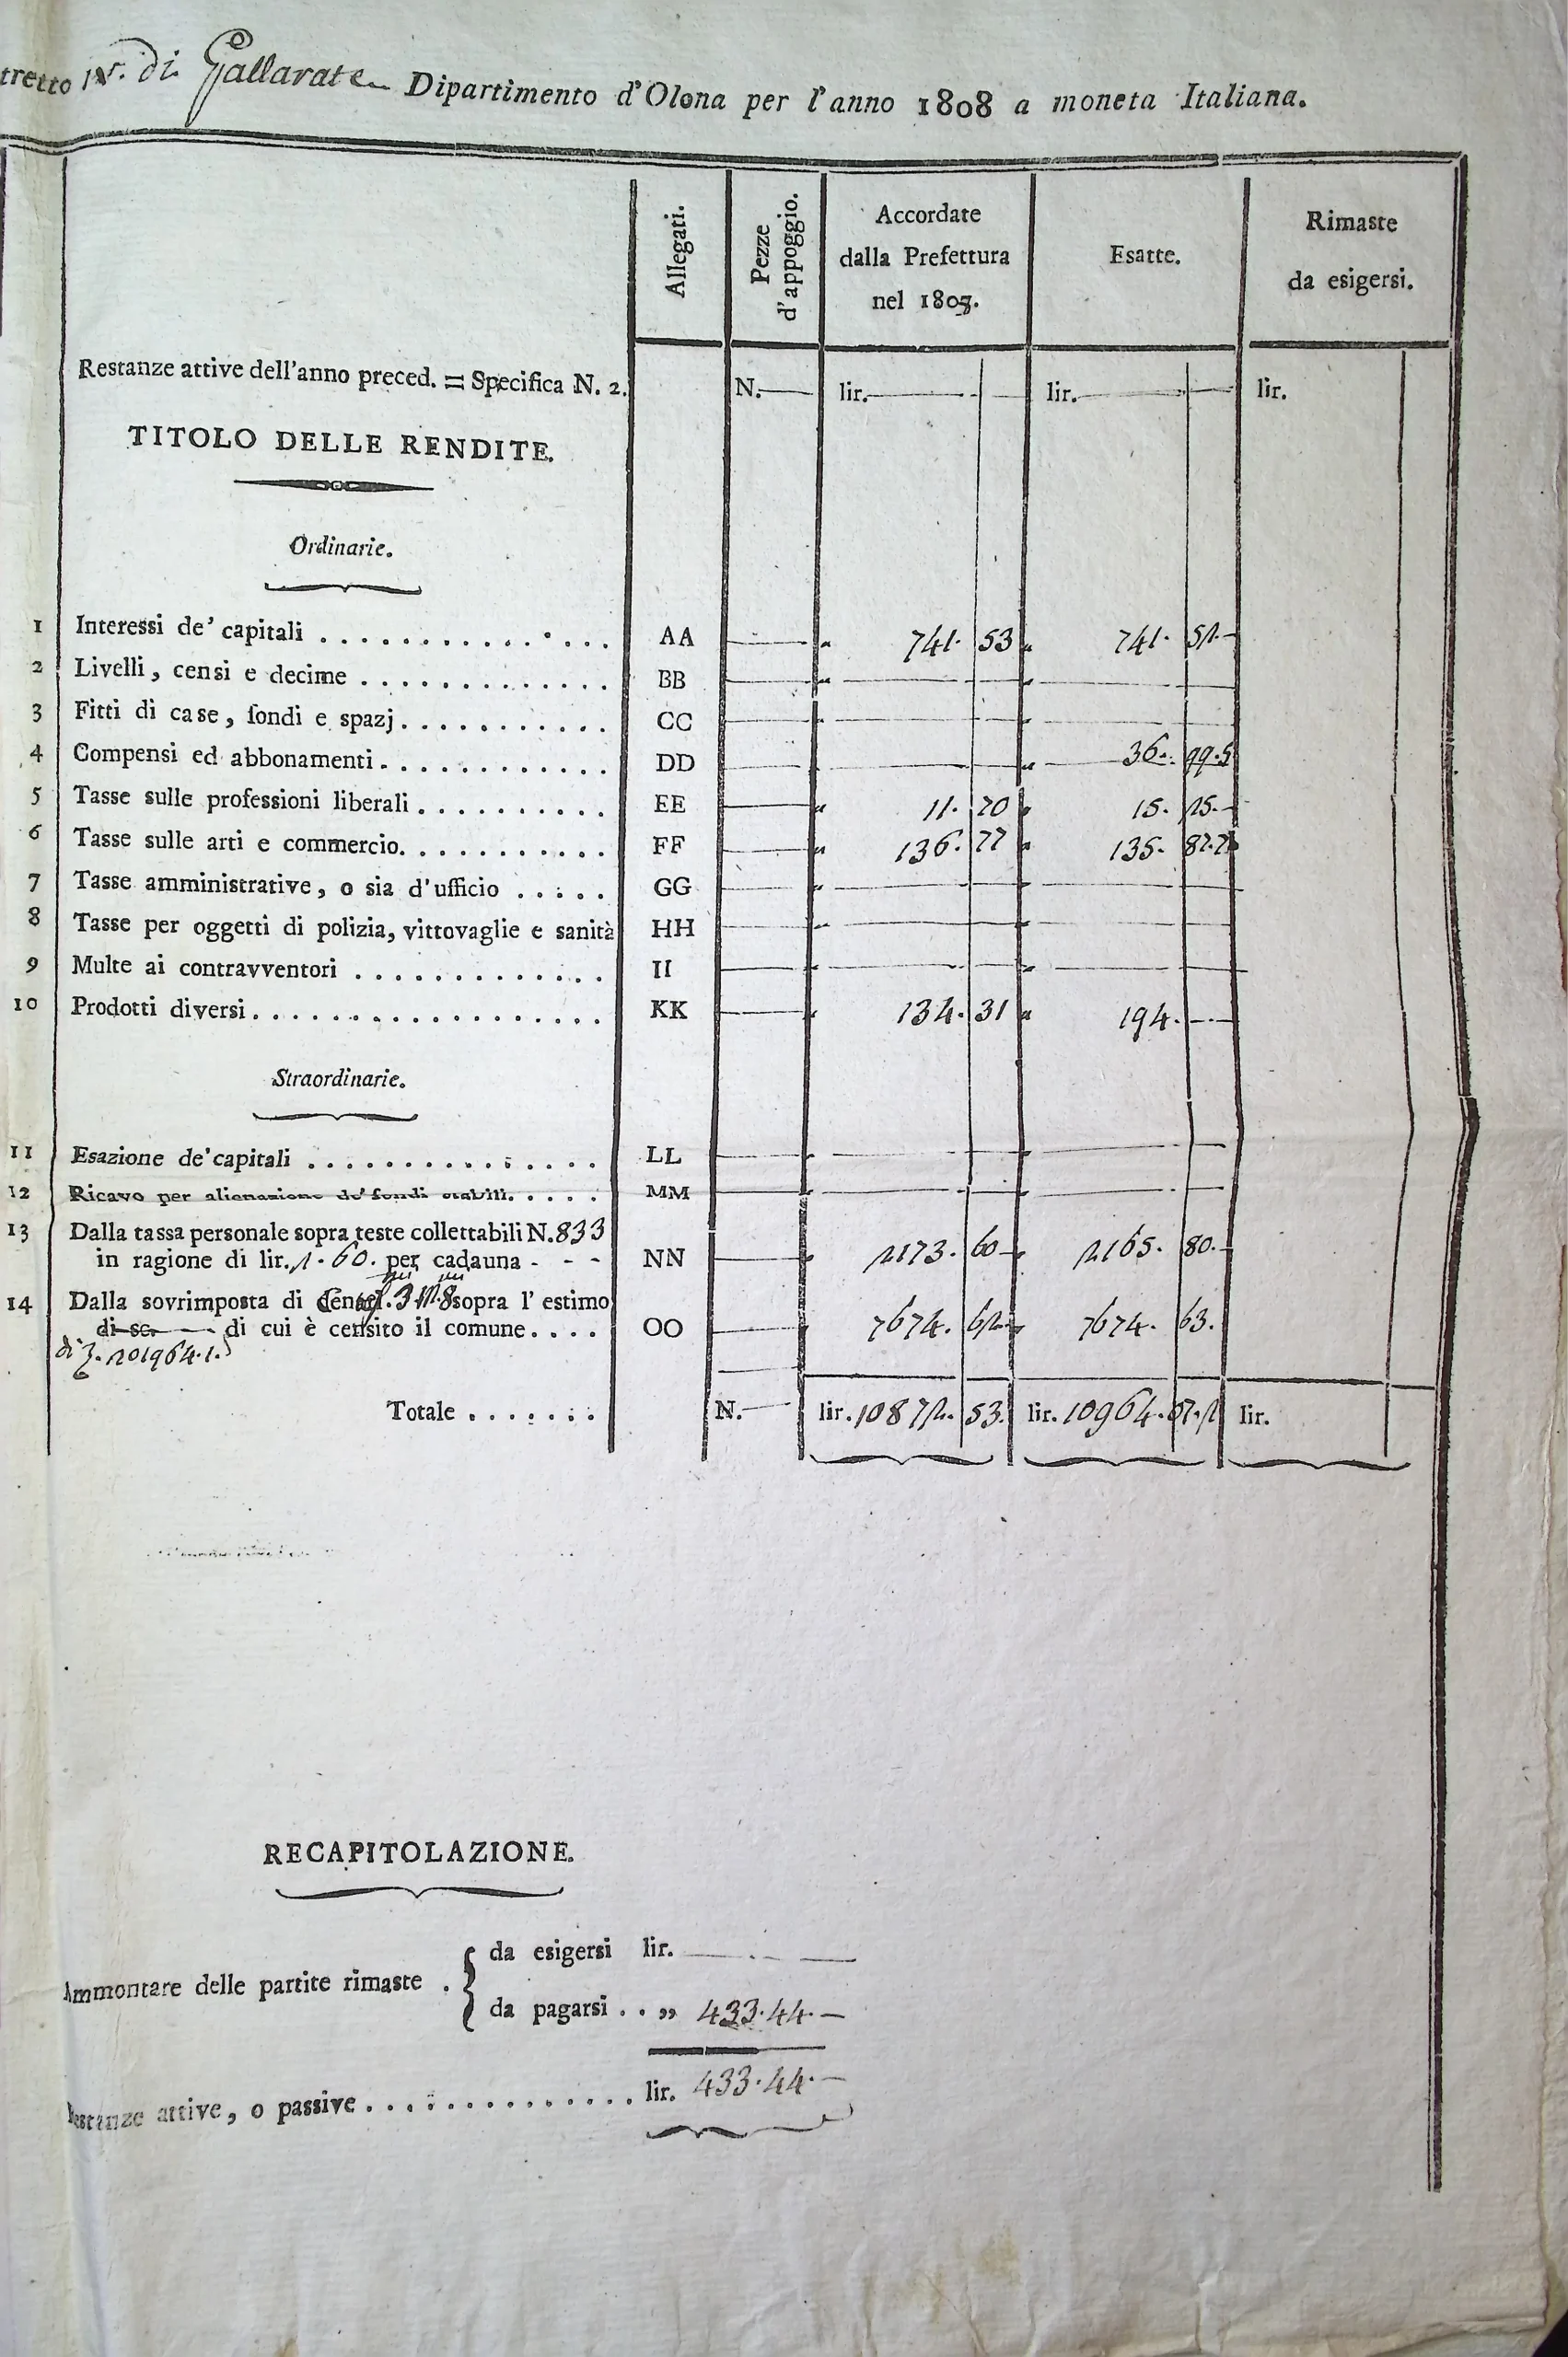 tretto IV. di Gallarate Dipartimento d'Olona per l'anno 1808 a moneta Italiana.
Allegati. Pezze d'appoggio. Accordate dalla Prefettura nel 1807. Esatte. Rimaste da esigersi.
Restanze attive dell'anno preced. = Specifica N. 2. N.— lir.— lir.— lir.
TITOLO DELLE RENDITE.
Ordinarie.
1 Interessi de' capitali . . . . . . . . . . . . . . AA — „ 741. 53 „ 741. 52.—
2 Livelli, censi e decime . . . . . . . . . . . . . BB — „ — „ —
3 Fitti di case, fondi e spazj. . . . . . . . . . . CC — „ — „ —
4 Compensi ed abbonamenti. . . . . . . . . . . . DD — „ — „ 36. 99.5
5 Tasse sulle professioni liberali . . . . . . . . . . EE — „ 11. 70 „ 15. 25.—
6 Tasse sulle arti e commercio. . . . . . . . . . . FF — „ 136. 77 „ 135. 87.7
7 Tasse amministrative, o sia d'ufficio . . . . . GG — „ — „ —
8 Tasse per oggetti di polizia, vittovaglie e sanità HH — „ — „ —
9 Multe ai contravventori . . . . . . . . . . . . . II — „ — „ —
10 Prodotti diversi. . . . . . . . . . . . . . . . . . KK — „ 134. 31 „ 194. —
Straordinarie.
11 Esazione de' capitali . . . . . . . . . . . . . . . LL — „ — „ —
12 Ricavo per alienazione de' fondi stabili. . . . . MM — „ — „ —
13 Dalla tassa personale sopra teste collettabili N. 833
in ragione di lir. 2. 60. per cadauna - - - NN — „ 2173. 60 „ 2165. 80.—
14 Dalla sovrimposta di sopra l' estimo
di sc. — di cui è censito il comune. . . . OO — „ 7674. 62 „ 7674. 63.
di 201964.1.
Totale . . . . . . . N.— lir. 10872. 53. lir. 10964. 07.2 lir.
RECAPITOLAZIONE.
Ammontare delle partite rimaste . { da esigersi lir. —
da pagarsi . . „ 433.44.—
Restanze attive, o passive . . . . . . . . . . . . . . lir. 433.44.—